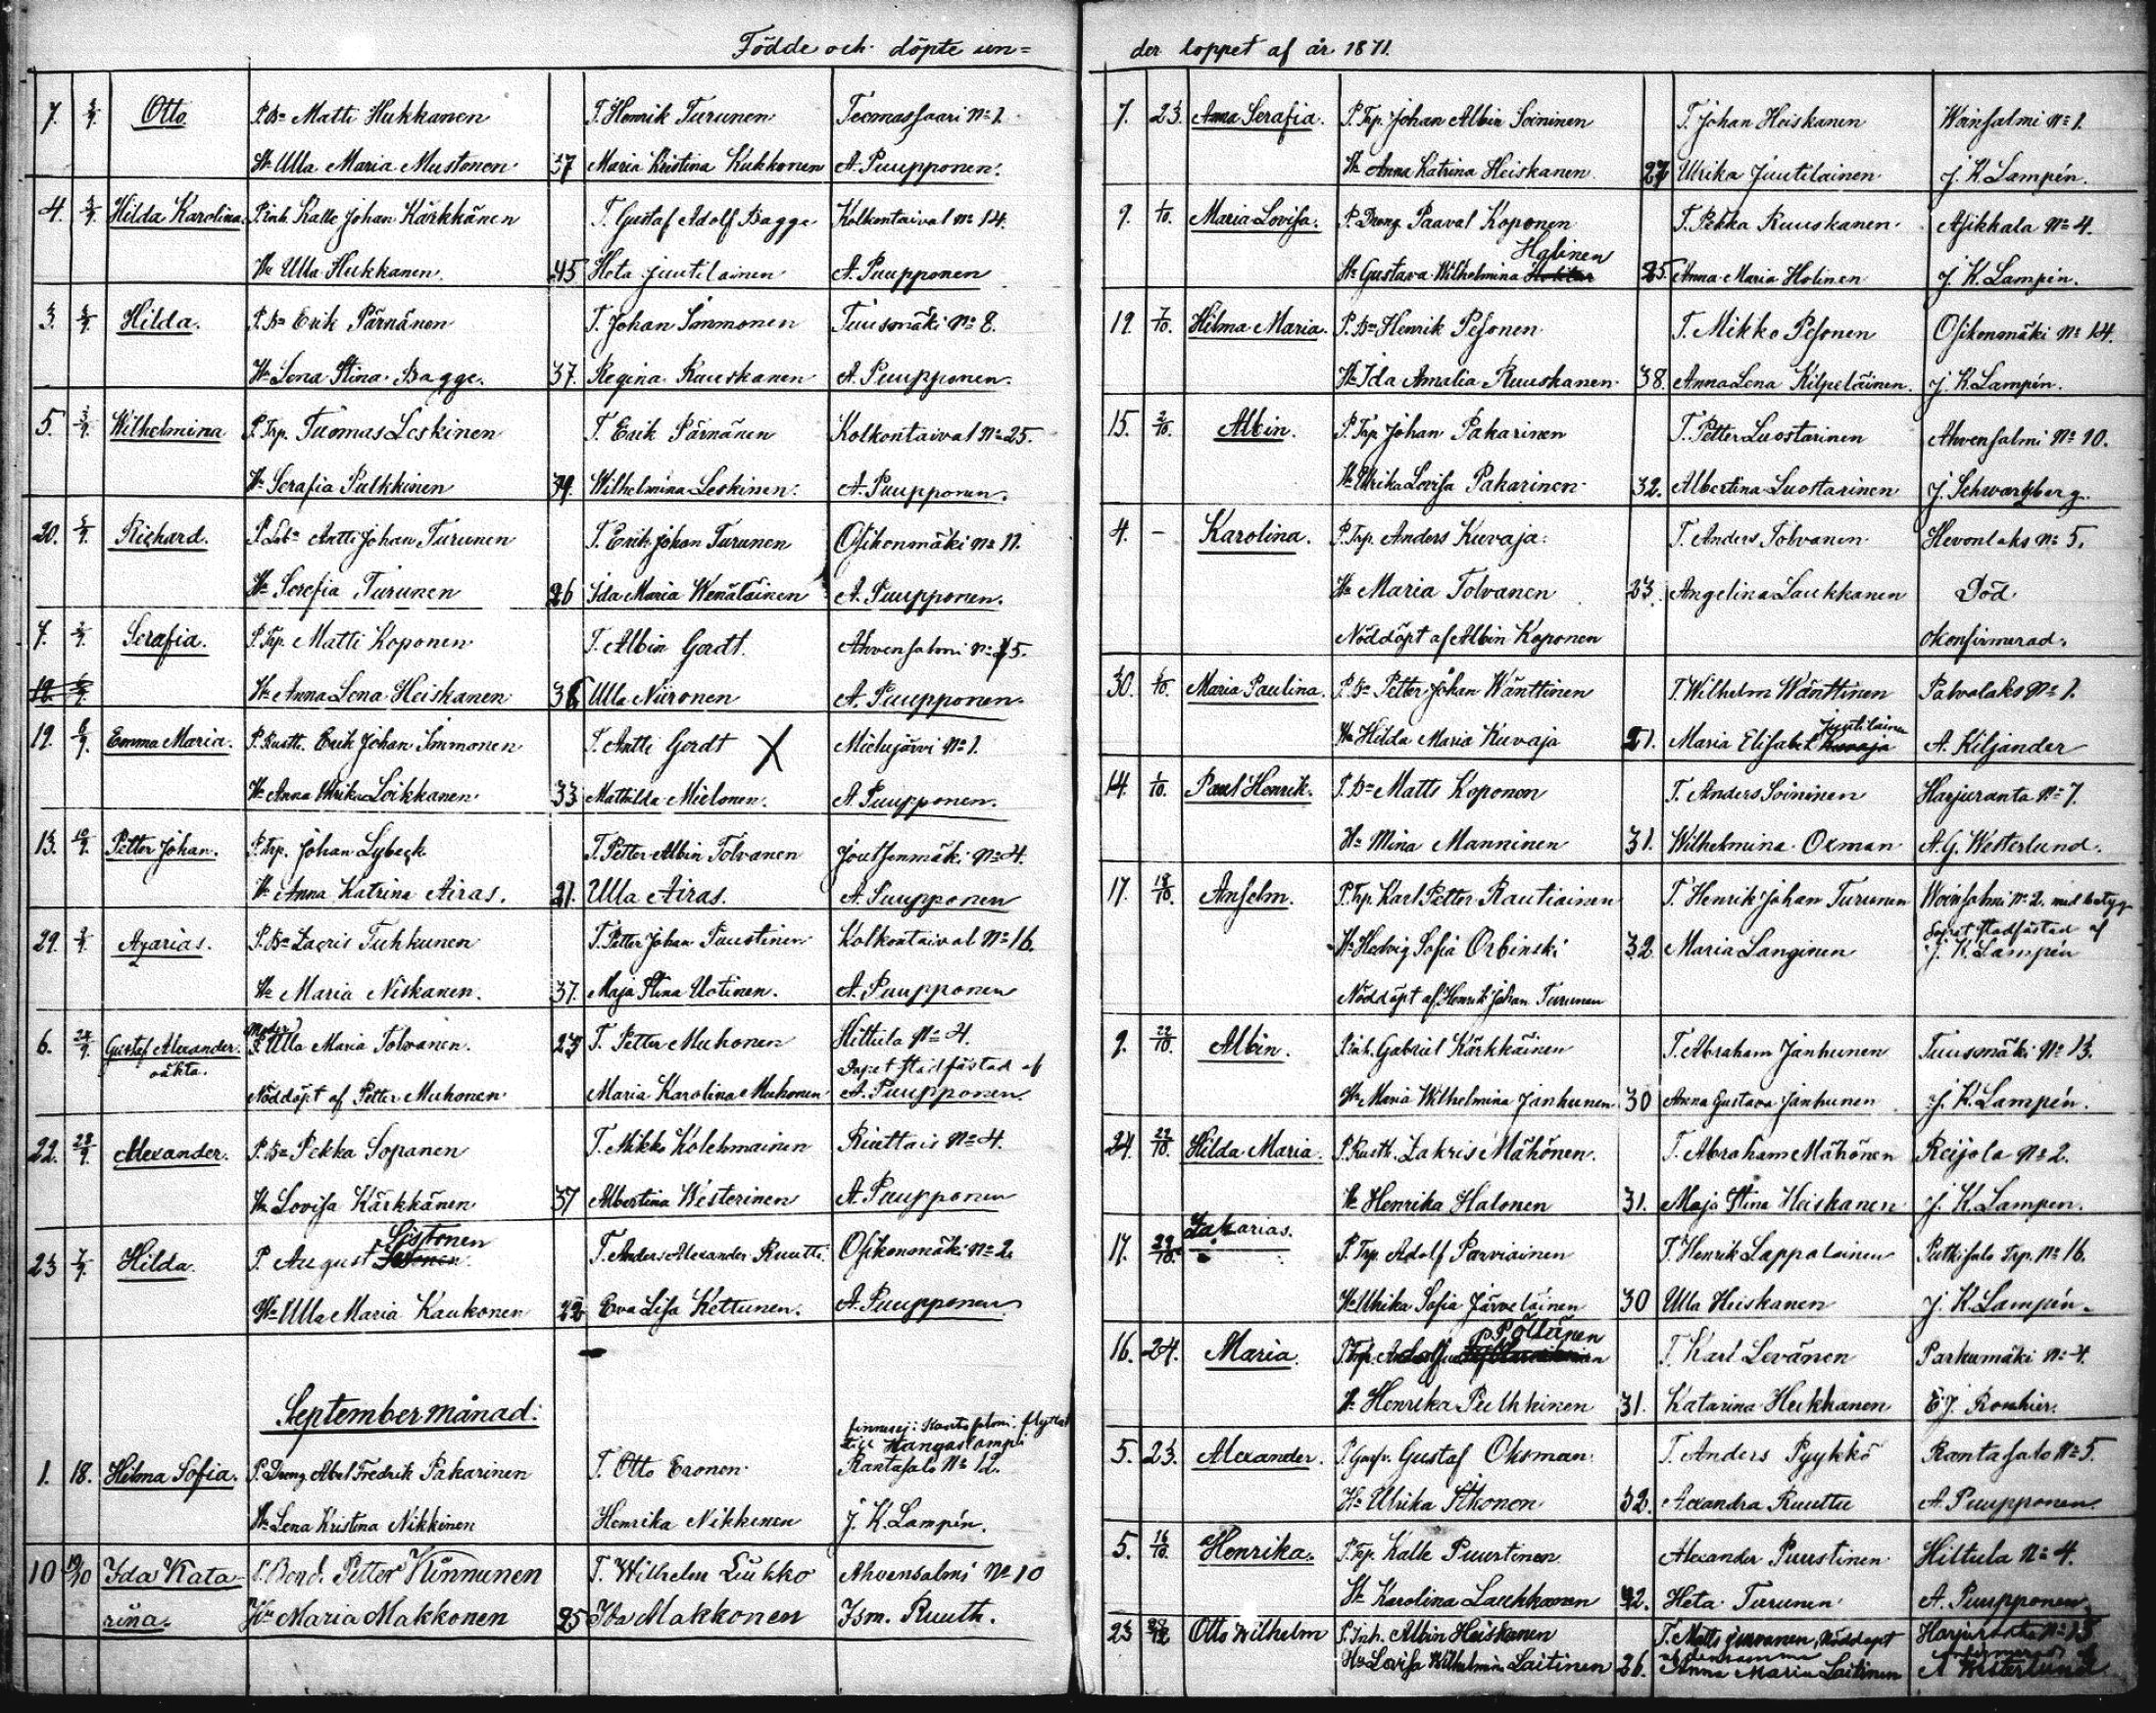 Födde och döpte un=
7. Otto P. Bn Matti Hukkanen T. Henrik Turunen Teomassaari No 1.
Hn Ulla Maria Mustonen 37 Maria Kristina Kukkonen A. Puupponen.
4. Hilda Karolina. P. inh. Kalle Johan Kärkkänen T. Gustaf Adolf Bagge Kolkontaival No 14.
Hn Ulla Hukkanen. 45 Heta Juutilainen A. Puupponen
3. Hilda. P. Bn Erik Pärnänen T. Johan Immonen Tuusmäki No 8.
Hn Lena Stina Bagge. 37. Regina Ruuskanen A. Puupponen.
5. 3/9. Wilhelmina P. Trp. Tuomas Leskinen T. Erik Pärnänen Kolkontaival No 25.
Hn Serafia Pulkkinen Wilhelmina Leskinen. A. Puupponen.
20. Richard. Antti Johan Turunen T. Erik Johan Turunen Osikonmäki No 11.
Hn Serefia Turunen 26 Ida Maria Wenäläinen A. Puupponen.
7. Serafia. P. Trp. Matti Koponen T. Albin Gordt. Ahvensalmi No 5.
Hn Anna Lena Heiskanen 36 Ulla Niironen A. Puupponen.
19. 6/9. Emma Maria. P. Rustt. Erik Johan Immonen T. Antti Gordt X Michijärvi No 1.
Hn Anna Ulrika Loikkanen 33 Mathilda Mielonen. A. Puupponen.
13. 10/9. Petter Johan. P. Trp. Johan Lybeck T. Petter Albin Tolvanen Joutsenmäki No 4.
Hn Anna Katrina Airas. 21. Ulla Airas. A. Puupponen
29. Azarias. P. Bn Lacris Tuhkunen T. Petter Johan Puustinen Kolkontaival No 16.
Hn Maria Niskanen. 37. Maja Stina Uotinen. A. Puupponen
6. 24/9. Gustaf Alexander. Moder P. Ulla Maria Tolvanen. 27 T. Petter Muhonen Hiltula No 4.
oäkta. Dopet stadfästad af
Nöddöpt af Petter Muhonen Maria Karolina Muhonen A. Puupponen
22. 28/9. Alexander. P. Bn Pekka Sopanen T. Mikko Kolehmainen No 4.
Hn Lovisa Kärkkänen 37 Albertina Westerinen A. Puupponen
Sistonen
23 7/9. Hilda. P. August T. Anders Alexander Ruutti. Osikonmäki No 2.
Hn Ulla Maria Kaukonen 22 Eva Lisa Kettunen. A. Puupponen
September månad.
finnes ej: flyttat
till Hangaslampi
1. 18. Hilma Sofia. P. Dreng Abel Fredrik Pakarinen T. Otto Eronen Rantasalo No 12.
Hn Lena Kristina Nikkinen Henrika Nikkinen J. K. Lampén.
10 19/10 Ida Kata- P. Bond. Petter Kinnunen T. Wilhelm Liukko Ahvensalmi No 10
rina. Hn Maria Makkonen 25 Ida Makkonen Ism. Ruuth.
der loppet af år 1871.
7. 23. Anna Serafia. P. Trp. Johan Albin Soininen T. Johan Heiskanen Woinsalmi No 1.
Hn Anna Katrina Heiskanen. 27 Ulrika Juutilainen J. K. Lampén.
9. 1/10. Maria Lovisa. P. Dreng Paaval Koponen T. Pekka Ruuskanen. Asikkala No 4.
Halinen
Hn Gustava Wilhelmina 25. Anna Maria Holinen J. K. Lampén.
19. 7/10. Hilma Maria. P. Bn Henrik Pesonen T. Mikko Pesonen Osikonmäki No 14.
Hn Ida Amalia Ruuskanen 38. Anna Lena Kilpeläinen. J. K. Lampén.
15. 2/10. Albin. P. Trp. Johan Pakarinen T. Petter Luostarinen Ahvensalmi No 10.
Hn Ulrika Lovisa Pakarinen 32. Albertina Luostarinen J. Schwartzberg.
4. – Karolina. P. Trp. Anders Kuvaja. T. Anders Tolvanen Hevonlaks No 5.
Hn Maria Tolvanen 23. Angelina Laukkanen Död
Nöddöpt af Albin Koponen okonfirmerad.
30. 1/10. Maria Paulina. P. Bn Petter Johan Wänttinen T. Wilhelm Wänttinen Palvalaks No 1.
Juutilainen
Hn Hilda Maria Kuvaja 21. Maria Elisabet Kuvaja A. Kiljander
14. 1/10. Paul Henrik. P. Bn Matts Koponen T. Anders Soininen Harjuranta No 7.
Hn Mina Manninen 31. Wilhelmina Oxman A. G. Westerlund.
17. 18/10. Anselm. P. Trp. Karl Petter Rautiainen T. Henrik Johan Turunen Woinsalmi No 2. med betyg
Dopet stadfästad af
Hn Hedvig Sofia Orbinski 32. Maria Langinen J. K. Lampén
Nöddöpt af Henrik Johan Turunen
9. 22/10. Albin. P. inh. Gabriel Kärkkäinen T. Abraham Janhunen Tuusmäki No 13.
Hn Maria Wilhelmina Janhunen 30 Anna Gustava Janhunen J. K. Lampén.
24. 22/10. Hilda Maria. P. Rustth. Zakris Mähönen. T. Abraham Mähönen Reijola No 2.
Hn Henrika Halonen 31. Maja Stina Heiskanen J. K. Lampen.
17. 29/10. Zakarias. P. Trp. Adolf Parviainen T. Henrik Lappalainen Putkisalo Trp. No 16.
Hn Ulrika Sofia Järveläinen 30 Ulla Heiskanen J. K. Lampén.
Pöllänen
16. 24. Maria. P. Trp. T. Karl Levänen Parkumäki No 4.
Hn Henrika Pulkkinen 31. Katarina Hukkanen E. J. Ronkier.
5. 23. Alexander. Gustaf Oksman. T. Anders Pyykkö Rantasalo No 5.
Hn Ulrika Itkonen 32. Alexandra Ruuttu A. Puupponen.
5. 16/10. Henrika. P. Trp. Kalle Puustinen Alexander Puustinen Hiltula No 4.
Hn Karolina Laukkanen 32. Heta Turunen A. Puupponen
23 Otto Wilhelm P. Inh. Albin Heiskanen T. Matts nöddöpt
af densamma
Hn Lovisa Wilhelmina Laitinen 26. Anna Maria Laitinen A Westerlund